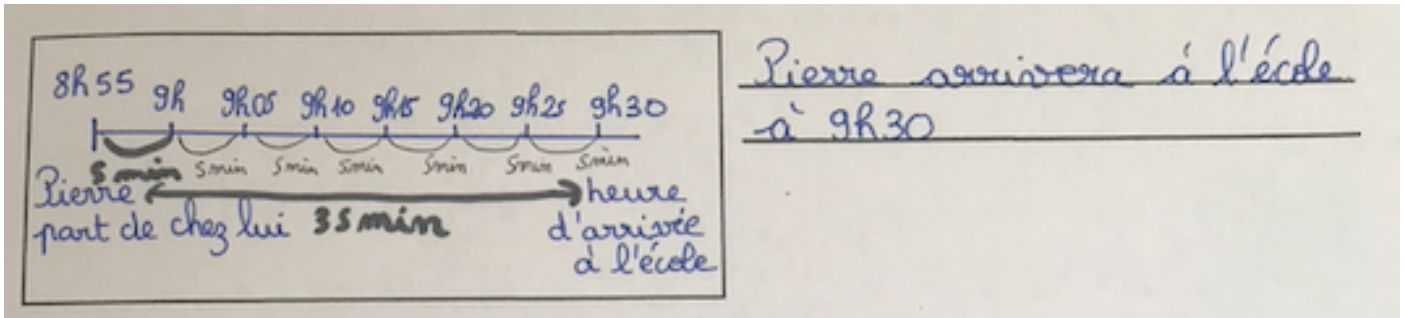 8h55 9h 9h05 9h10 9h15 9h20 9h25 9h30
5 min 5 min 5 min 5 min 5 min 5 min 5 min
Pierre
part de chez lui
35 min
heure
d'arrivée
à l'école
Pierre arrivera à l'école
à 9h30